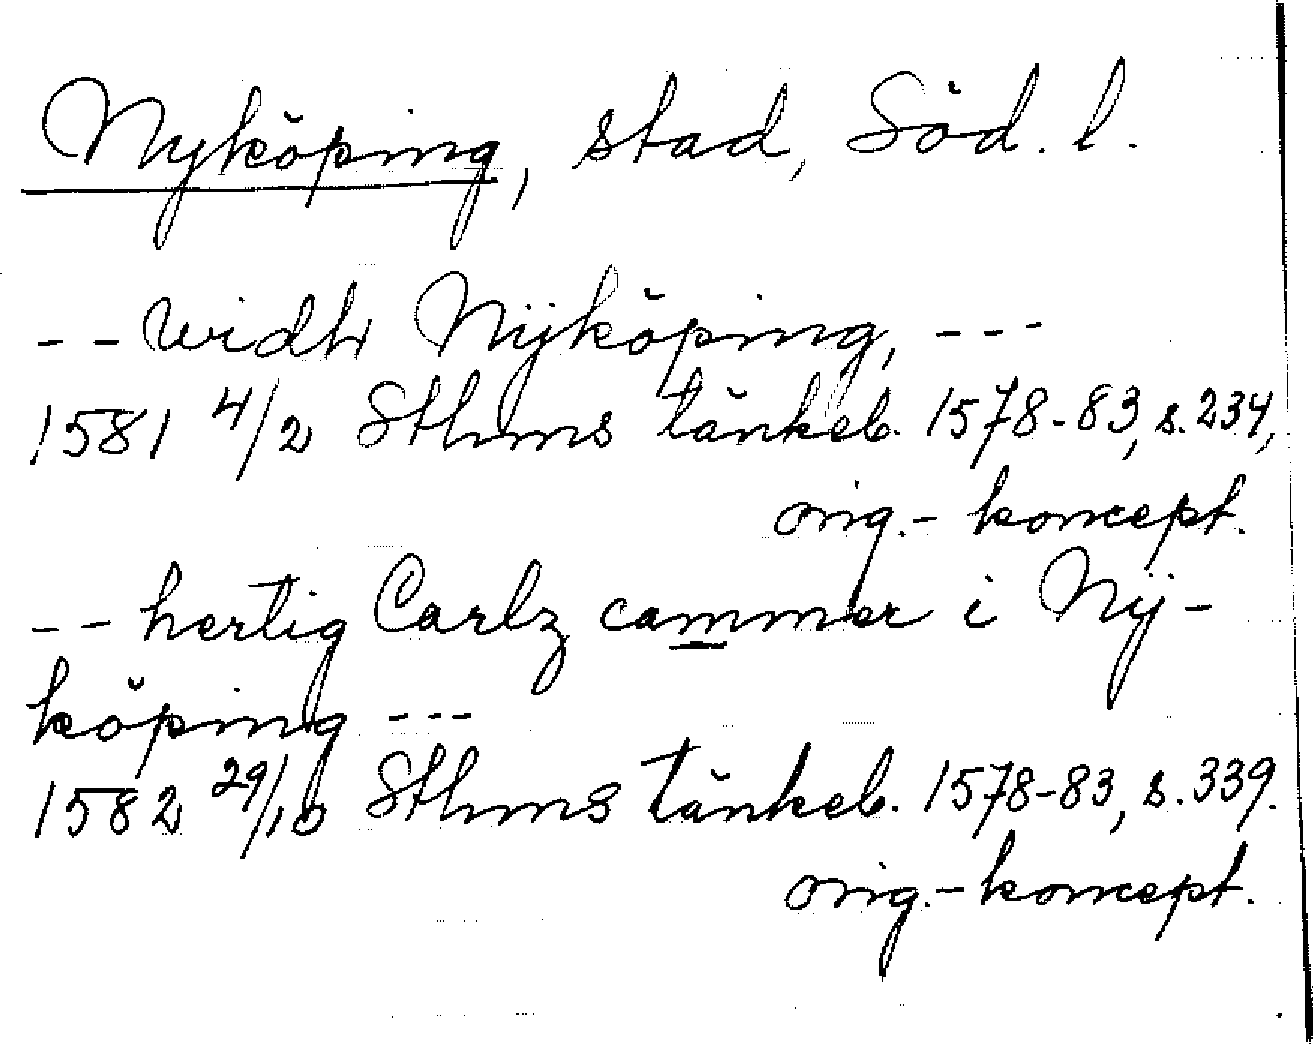 Nyköping, stad, Söd. l.
-- widh Nÿköping, ---
1581 4/2 Sthms tänkeb. 1578-83, s. 234,
orig.- koncept.
-- hertig Carlz cammer i Nÿ-
köping ---
1582 29/10 Sthms tänkeb. 1578-83, s. 339.
orig.- koncept.